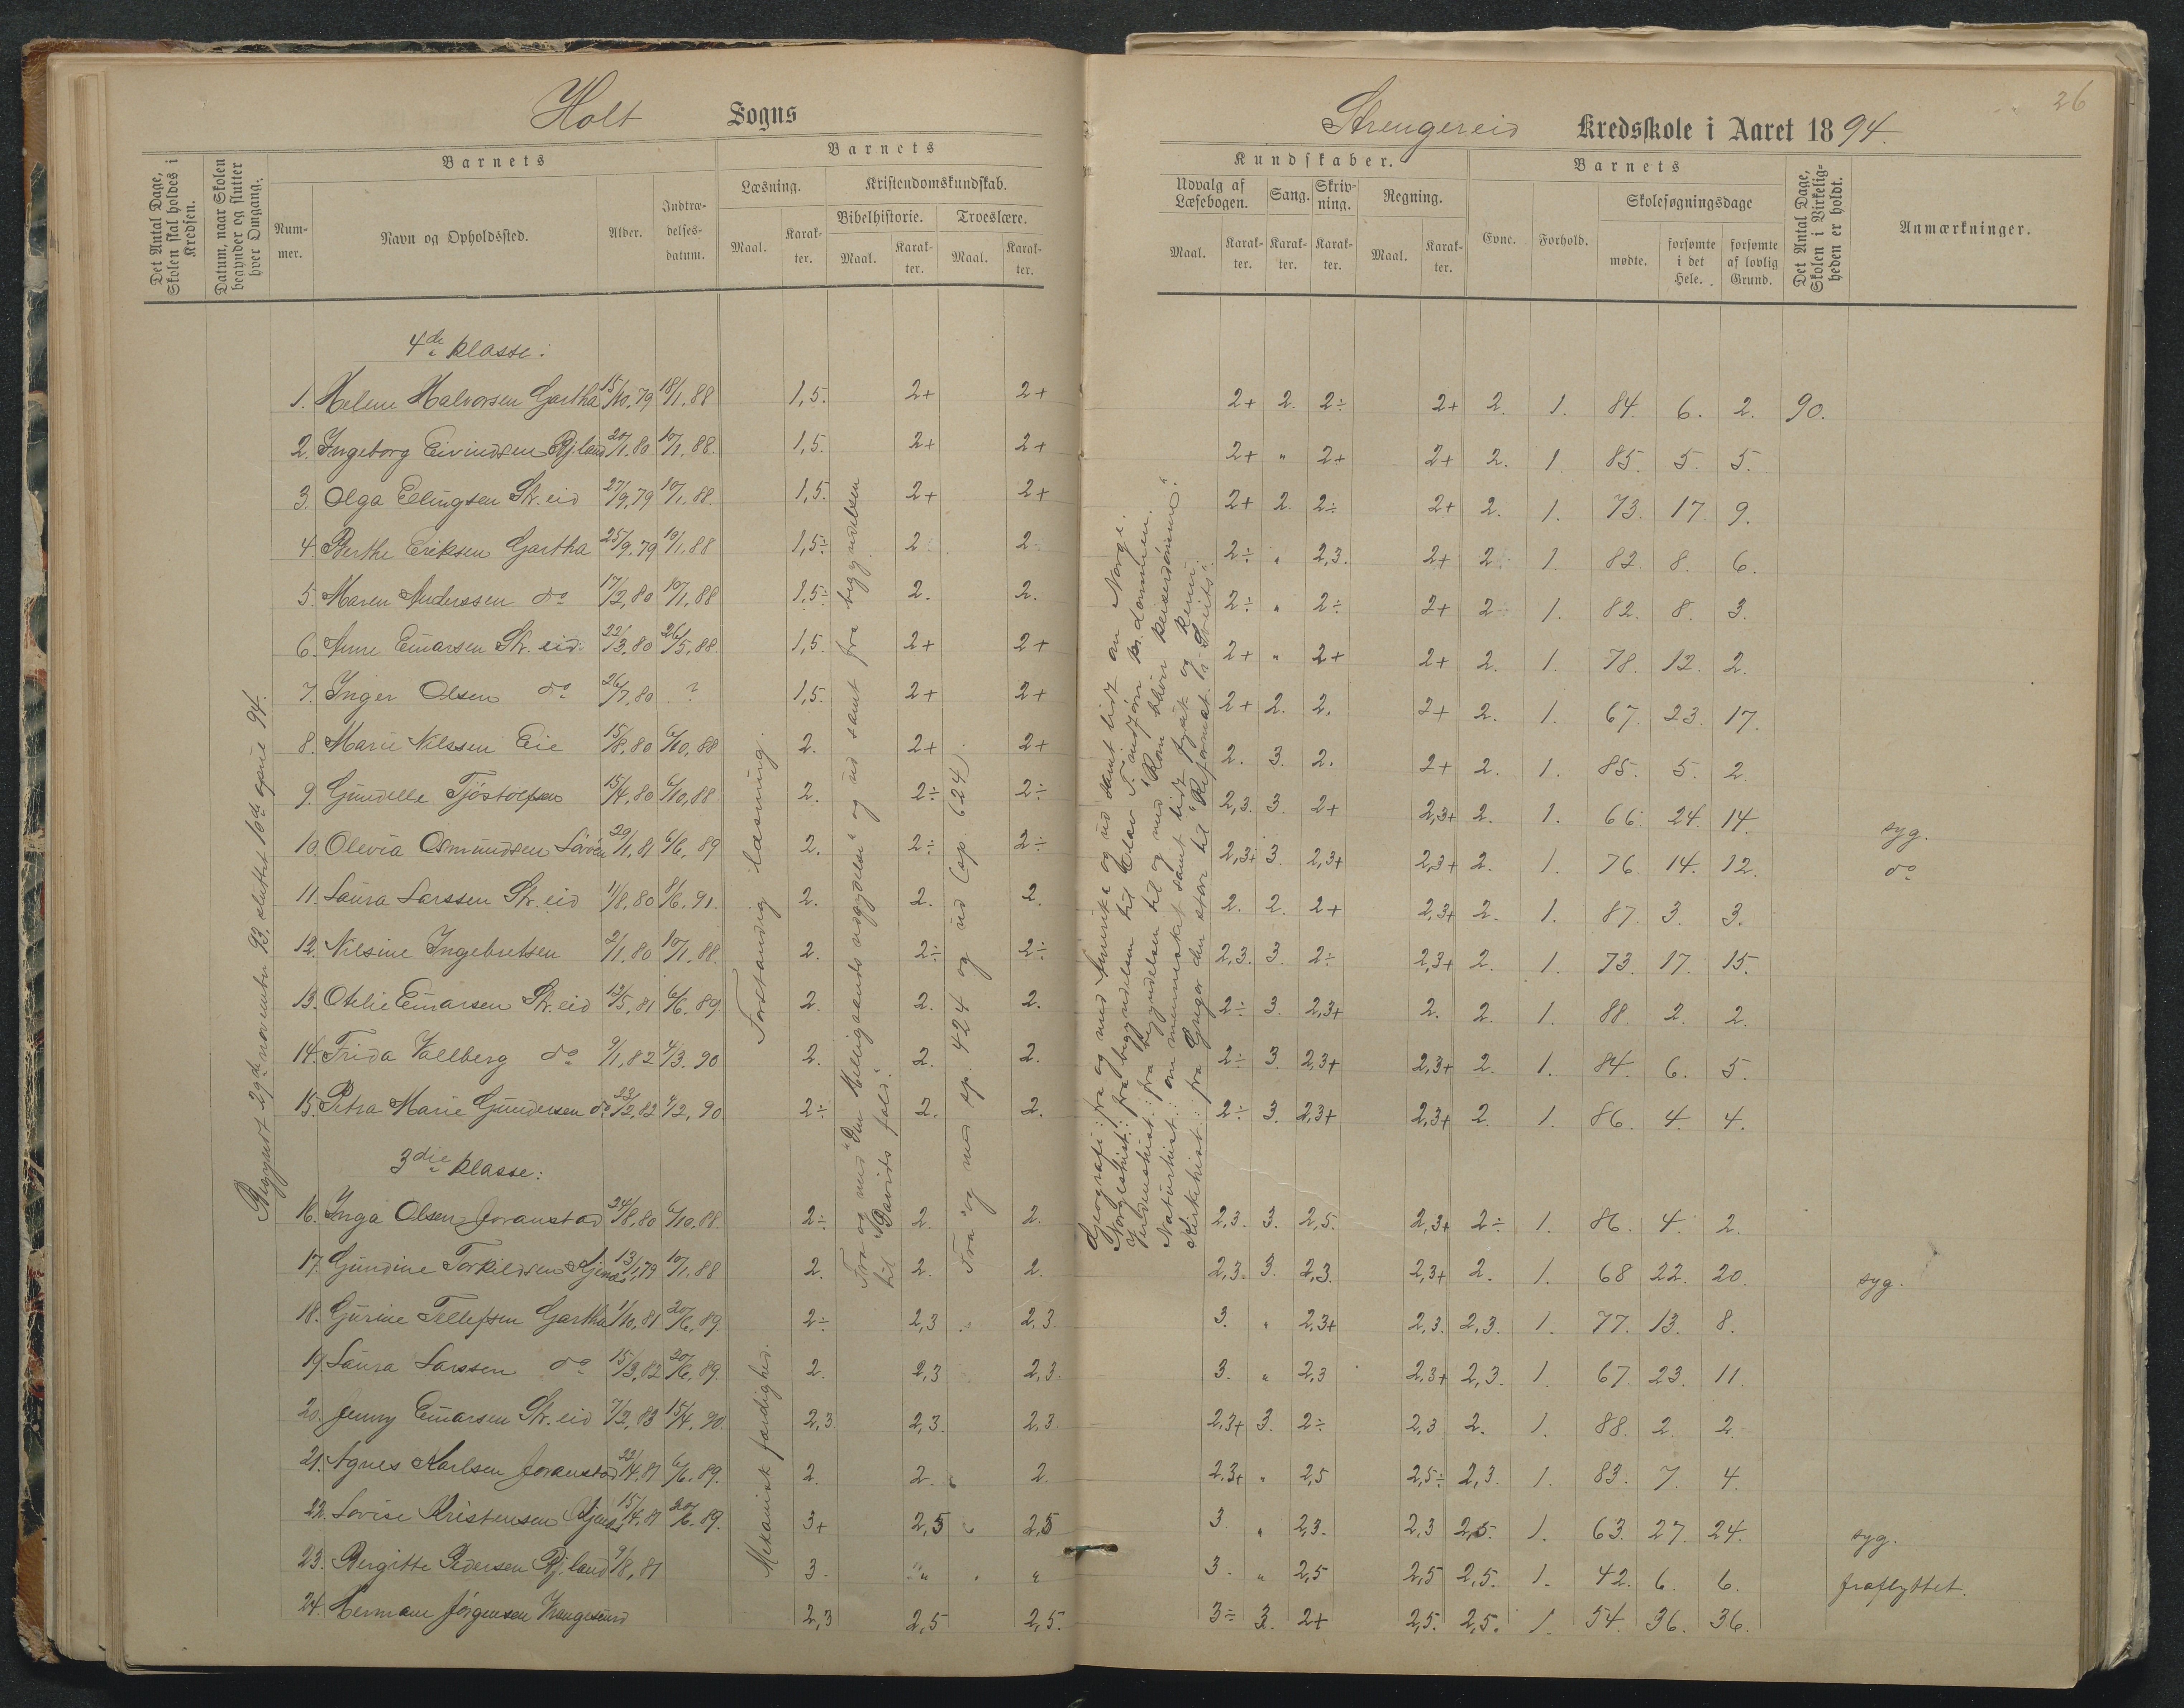 26
Holt Sogns
Strengereid Kredsskole i Aaret 1894.
Det Antal Dage, Skolen skal holdes i Kredsen.
Datum, naar Skolen begynder og slutter hver Omgang.
Barnets
Num-
mer.
Navn og Opholdssted.
Alder.
Indtræ-
delses-
datum.
Barnets
Læsning.
Maal.
Karak-
ter.
Kristendomskundskab.
Bibelhistorie.
Maal.
Karak-
ter.
Troeslære.
Maal.
Karak-
ter.
Kundskaber.
Udvalg af
Læsebogen.
Maal.
Karak-
ter.
Sang.
Karak-
ter.
Skriv-
ning.
Karak-
ter.
Regning.
Maal.
Karak-
ter.
Barnets
Evne.
Forhold.
Skolesøgningsdage
mødte.
forsømte
i det
Hele.
forsømte
af lovlig
Grund.
Det Antal Dage, Skolen i Virkelig-
heden er holdt.
Anmærkninger.
Begyndt 29de november 93, sluttet 10de april 94.
Forstandig læsning.
Mekanisk færdighed.
Fra og med "Den Helligaands udgydelse" og ud samt fra begyndelsen
til "Davids fald".
Fra og med sp. 424 og ud (sp 624)
Geografi: fra og med Amerika og ud samt lidt om Norge.
Norgeshist.: fra begyndelsen til Olav
Verdenshist.: fra begyndelsen til og med "Rom bliver keiserdømme".
Naturhist.: om mennesket samt lidt
Kirkehist.: fra Gregor den store til "Reformat. i Sveits".
4de klasse:
1. Helene Halvorsen Gartha 15/10,79 18/1,88 1,5. 2+ 2+ 2+ 2. 2÷ 2+ 2. 1. 84. 6. 2. 90.
2. Ingeborg Eivindsen Bj.land 20/1,80 10/1,88. 1,5. 2+ 2+ 2+ " 2+ 2+ 2. 1. 85. 5. 5.
3. Olga Ellingsen Str.eid 27/9,79 10/1,88. 1,5. 2+ 2+ 2+ 2. 2÷ 2+ 2. 1. 73. 17. 9.
4. Berthe Eriksen Gartha 25/9,79 10/1,88 1,5÷ 2. 2. 2÷ " 2,3. 2+ 2. 1. 82. 8. 6.
5. Maren Anderssen do 17/2,80 10/1,88 1,5÷ 2. 2. 2÷ " 2÷ 2+ 2. 1. 82. 8. 3.
6. Anne Einarsen Str.eid. 22/3,80 26/5,88. 1,5. 2+ 2+ 2+ " 2+ 2+ 2. 1. 78. 12. 2.
7. Inger Olsen do 26/7,80 ? 1,5. 2+ 2+ 2+ 2. 2. 2+ 2. 1. 67. 23. 17.
8. Marie Nilssen Eie 15/8,80 6/10,88 2. 2+ 2+ 2. 3. 2. 2+ 2. 1. 85. 5. 2.
9. Gundelle Tjöstolfsen 15/4,80 6/10,88 2. 2÷ 2÷ 2,3. 3. 2+ 2,3+ 2. 1. 66. 24. 14. syg.
10. Olevia Osmundsen 29/1,81 6/6,89 2. 2÷ 2÷ 2,3+ 3. 2,3+ 2,3+ 2. 1. 76. 14. 12. do
11. Laura Larssen Str.eid 11/8,80 8/6,91. 2. 2. 2. 2. 2. 2+ 2,3+ 2. 1. 87. 3. 3.
12. Nilsine Ingebretsen 2/1,80 10/1,88. 2. 2÷ 2÷ 2,3. 3. 2÷ 2,3+ 2. 1. 73. 17. 15.
13. Otelie Einarsen Str.eid 12/5,81 6/6,89. 2. 2. 2. 2÷ 3. 2,3+ 2. 2. 1. 88. 2. 2.
14. Frida Vallberg do 9/1,82 4/3,90 2. 2. 2. 2÷ 3. 2,3+ 2,3+ 2. 1. 84. 6. 5.
15. Petra Marie Gundersen do 23/2,82 4/2,90. 2÷ 2. 2. 2÷ 3. 2,3+ 2,3+ 2. 1. 86. 4. 4.
3die klasse:
16. Inga Olsen Goranstad 24/8,80 6/10,88. 2÷ 2. 2. 2,3. 3. 2,5. 2,3+ 2÷ 1. 86. 4. 2.
17. Gundine Torkildsen Kjenas 13/1,79 10/1,88 2. 2. 2. 2,3. 3. 2,3. 2,3+ 2. 1. 68 22. 20. syg.
18. Gurine Tellefsen Gartha 1/10,81 20/6,89 2÷ 2,3 2,3. 3. " 2,3+ 2,3. 2,3. 1. 77. 13. 8.
19. Laura Larssen do 15/3,82 20/6,89. 2. 2,3 2,3. 3. " 2,3 2,3+ 2,3. 1. 67. 23. 11.
20. Jenny Einarsen Str.eid 7/2,83 15/4,90. 2,3 2,3. 2,3 2,3+ 3. 2÷ 2,3 2. 1. 88. 2. 2.
21. Agnes Karlsen Goranstad 22/4,81 6/6,89. 2. 2. 2. 2,3+ " 2,5 2,5÷ 2,3. 1. 83. 7. 4.
22. Lovise Kristensen Kjenas 15/4,81 20/6,89. 3+ 2,5 2,5 3 " 2,3. 2,3 2,5. 1. 63. 27. 24. syg.
23. Bergitte Pedersen Bj.land 9/8,81 3. " " 3. " 2,5 2,5 2,5. 1. 42. 6. 6. fraflyttet.
24. Herman Jörgensen 2,3 2,5 2,5. 3÷ 3. 2+ 2,5. 2,5. 1. 54. 36. 36.